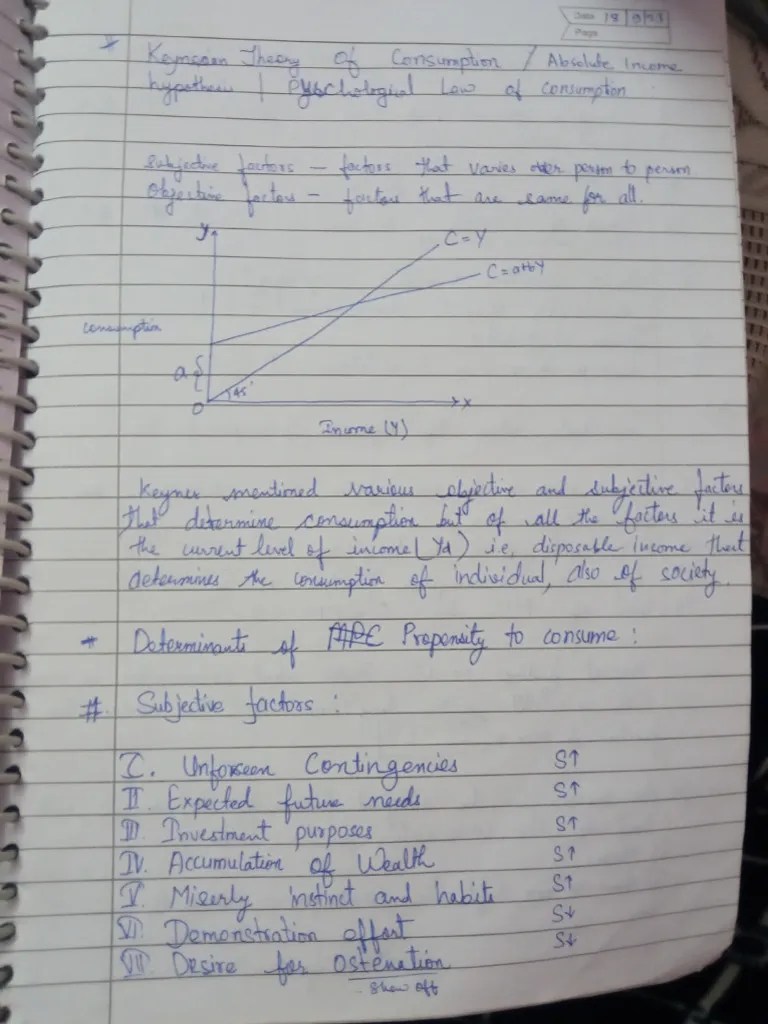 Date 18
Page
* Keynesian Theory of Consumption / Absolute Income
hypothesis / Psychological Law of consumption
Subjective factors - factors that varies person to person
Objective factors - factors that are same for all.
y
C=Y
C=a+bY
Consumption
a
45°
O
x
Income (Y)
Keynes mentioned various objective and subjective factors
that determine consumption but of all the factors it is
the current level of income (Yd) i.e. disposable income that
determines the consumption of individual, also of society.
* Determinants of MPC Propensity to consume :
# Subjective factors :
I. Unforseen Contingencies S↑
II. Expected future needs S↑
III. Investment purposes S↑
IV. Accumulation of Wealth S↑
V. Miserly instinct and habits S↑
VI. Demonstration effort S↓
VII. Desire for ostenation S↓
show off